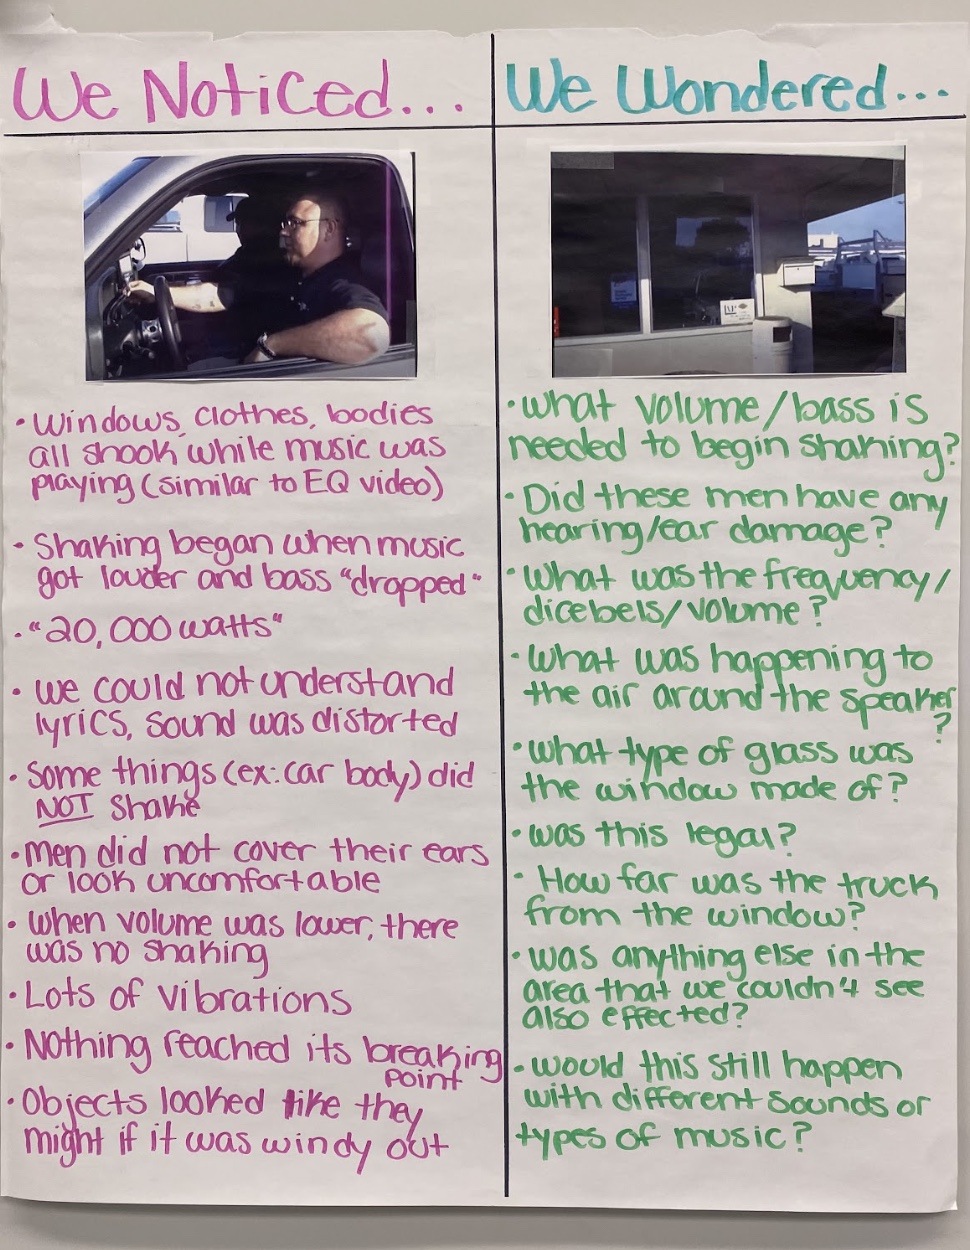 We Noticed...
• Windows, clothes, bodies
all shook while music was
playing (similar to EQ video)
• Shaking began when music
got louder and bass "dropped"
• "20,000 watts"
• We could not understand
lyrics, sound was distorted
• Some things (ex: car body) did
NOT shake
• Men did not cover their ears
or look uncomfortable
• When volume was lower, there
was no shaking
• Lots of vibrations
• Nothing reached its breaking
point
• Objects looked like they
might if it was windy out
We Wondered...
• What volume/bass is
needed to begin shaking?
• Did these men have any
hearing/ear damage?
• What was the frequency/
dicebels/volume?
• What was happening to
the air around the speaker
?
• What type of glass was
the window made of?
• Was this legal?
• How far was the truck
from the window?
• Was anything else in the
area that we couldn't see
also effected?
• Would this still happen
with different sounds or
types of music?